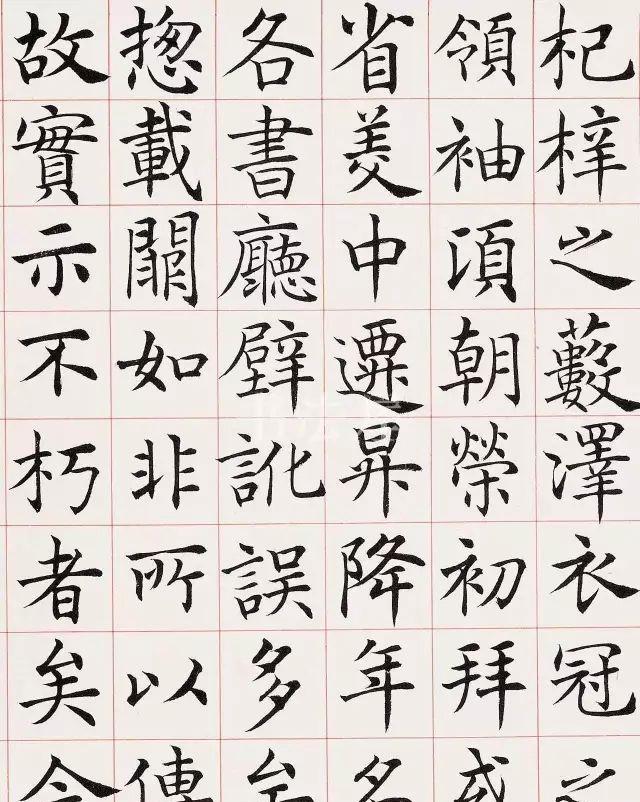 杞梓之藪澤衣冠之
領袖頃朝榮初拜或
省美中遷昇降年名
各書廳壁訛誤多矣
揔載闕如非所以傳
故實示不朽者矣今